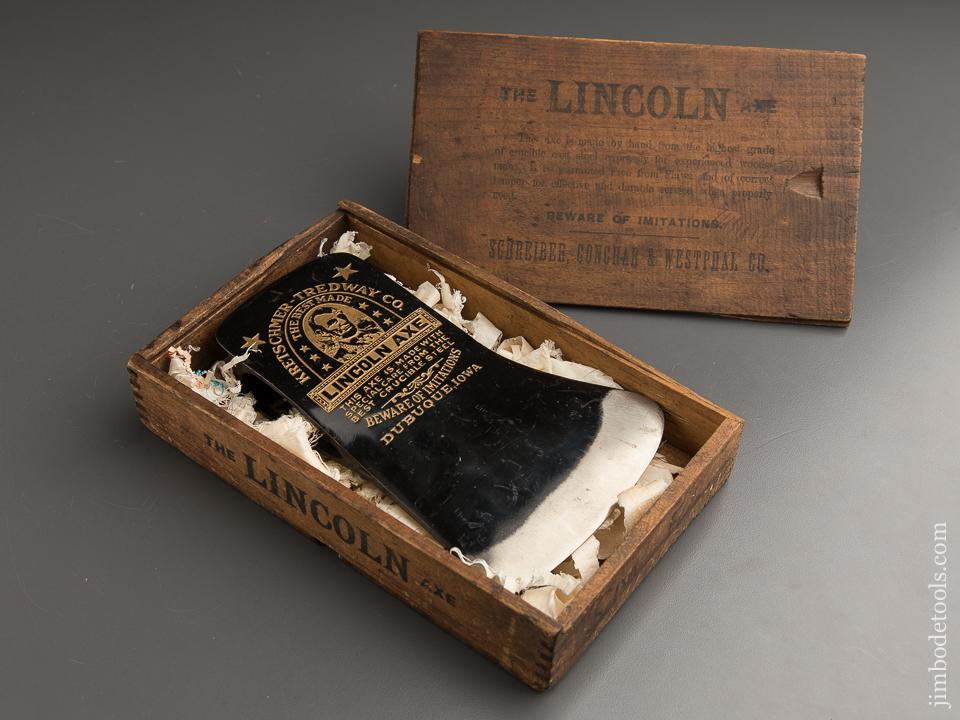 THE LINCOLN AXE
This axe is made by hand from the highest grade
of crucible cast steel expressly for experienced woods-
men. It is warranted free from flaws, and of correct
temper for effective and durable service when properly
used.
BEWARE OF IMITATIONS.
SCHREIBER, CONCHAR & WESTPHAL CO.
KRETSCHMER-TREDWAY CO.
THE BEST MADE
LINCOLN AXE
THIS AXE IS MADE WITH
SPECIAL CARE FROM THE
BEST CRUCIBLE STEEL
BEWARE OF IMITATIONS
DUBUQUE, IOWA
THE LINCOLN AXE
jimbodetools.com